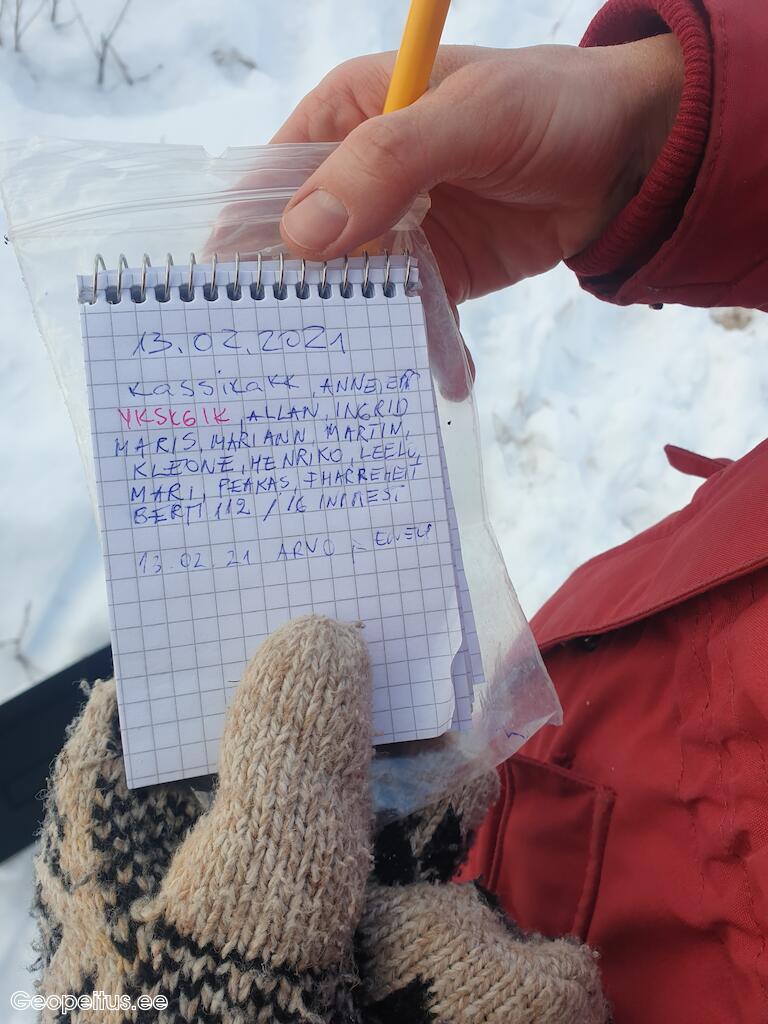 13.02.2021
KASSIKAKK, ANNELEH
YKSK6IK, ALLAN, INGRID
MARIS, MARIANN, MARTIN,
KLEONE, HENRIKO, LEELO,
MARI, PEAKAS,
BERTI 112 / 16 INIMEST
13.02.21 ARVO
Geopeitus.ee